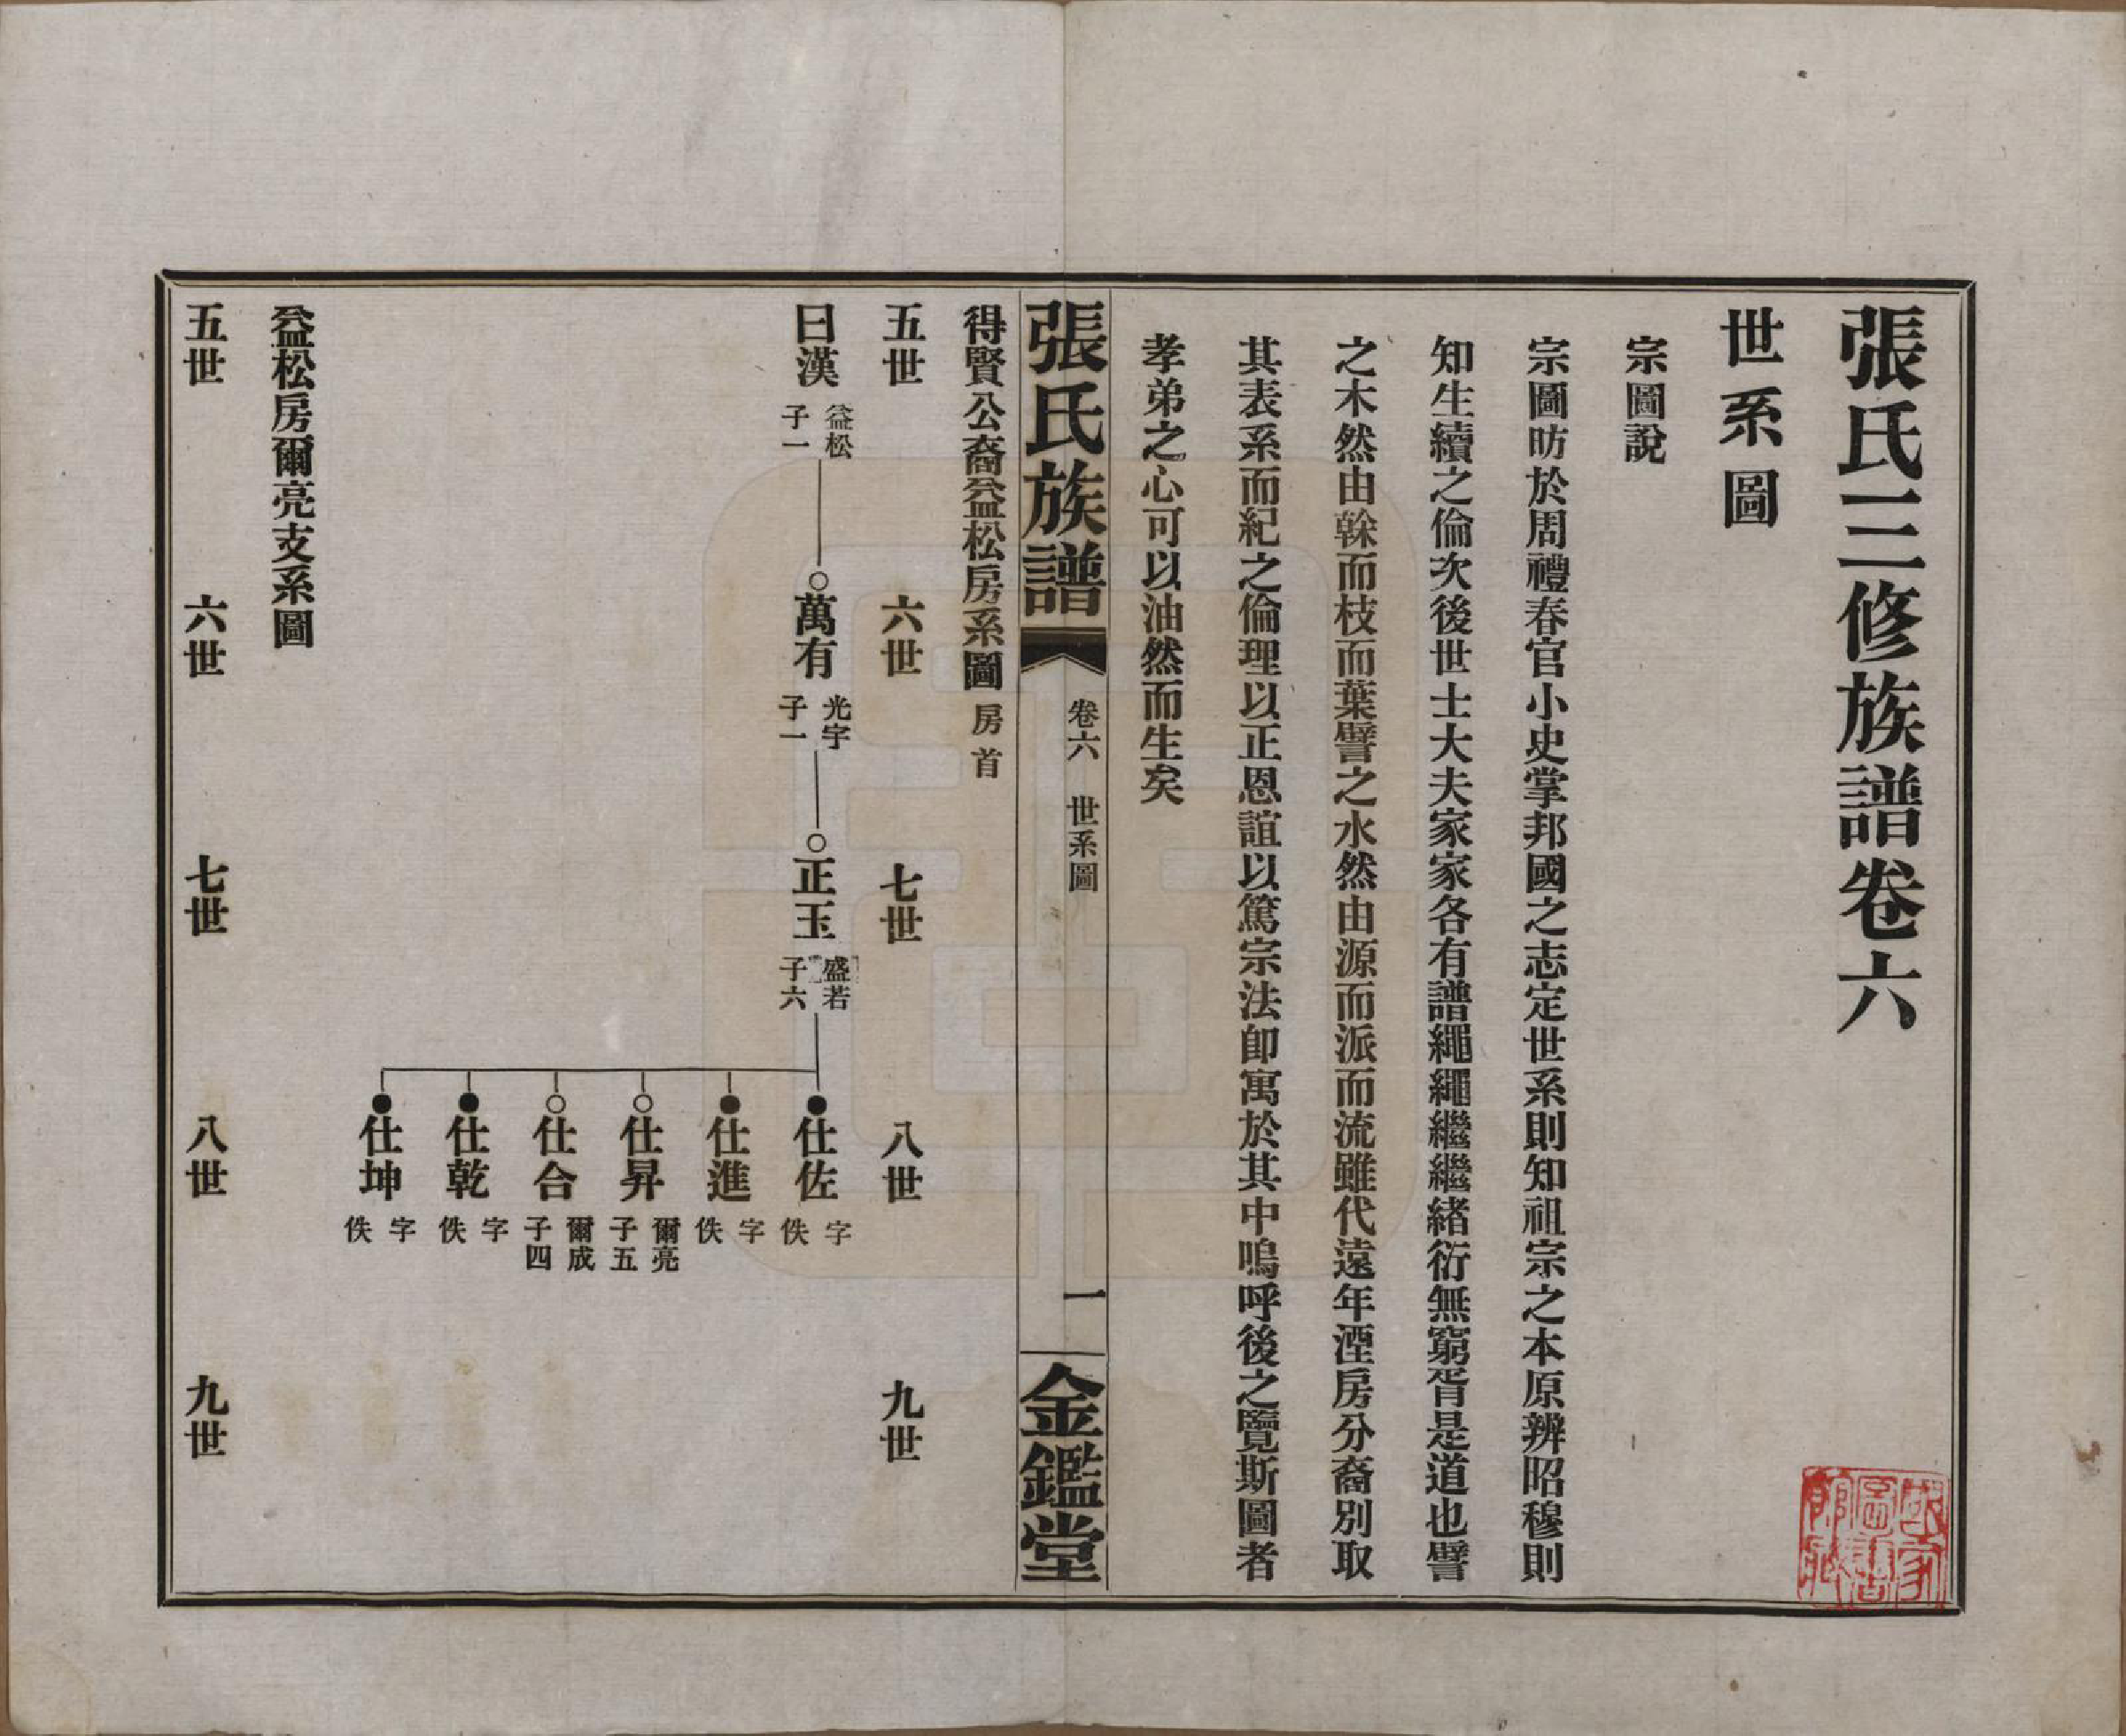 張氏三修族譜卷六
世系圖
宗圖說
宗圖昉於周禮春官小史掌邦國之志定世系則知祖宗之本原辨昭穆則
知生續之倫次後世士大夫家家各有譜繩繩繼繼緒衍無窮胥是道也譬
之木然由榦而枝而葉譬之水然由源而派而流雖代遠年湮房分裔別取
其表系而紀之倫理以正恩誼以篤宗法卽寓於其中嗚呼後之覽斯圖者
孝弟之心可以油然而生矣
張氏族譜
卷六 世系圖
一
金鑑堂
得賢公裔益松房系圖 房首
五世 六世 七世 八世 九世
曰漢 益松 子一
萬有 光宇 子一
正玉 盛若 子六
仕佐 字佚
仕進 字佚
仕昇 爾亮 子五
仕合 爾成 子四
仕乾 字佚
仕坤 字佚
益松房爾亮支系圖
五世 六世 七世 八世 九世
國家圖書館藏